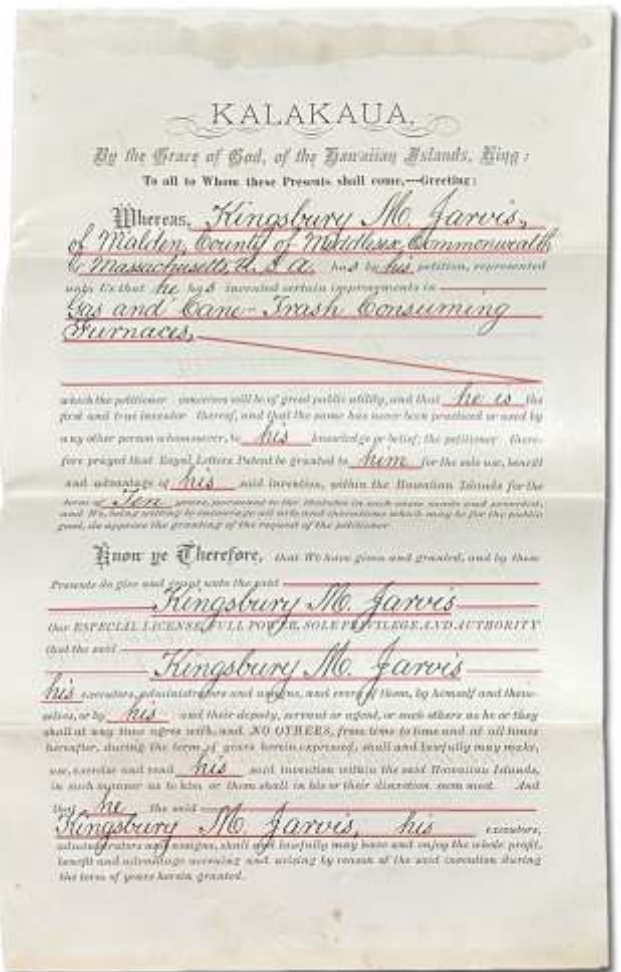 KALAKAUA,
By the Grace of God, of the Hawaiian Islands, King:
To all to Whom these Presents shall come,—Greeting:
Whereas, Kingsbury M. Jarvis,
of Malden, County of Middlesex, Commonwealth
of Massachusetts, U.S.A. has by his petition, represented
unto Us that he has invented certain improvements in
Gas and Cane-Trash Consuming
Furnaces,
which the petitioner conceives will be of great public utility, and that he is the
first and true inventor thereof, and that the same has never been practiced or used by
any other person whomsoever, to his knowledge or belief; the petitioner there-
fore prayed that Royal Letters Patent be granted to him for the sole use, benefit
and advantage of his said invention, within the Hawaiian Islands for the
term of Ten years, pursuant to the Statutes in such cases made and provided,
and We, being willing to encourage all arts and inventions which may be for the public
good, do approve the granting of the request of the petitioner
Know ye Therefore, that We have given and granted, and by these
Presents do give and grant unto the said
Kingsbury M. Jarvis
Our ESPECIAL LICENSE, FULL POWER, SOLE PRIVILEGE AND AUTHORITY
that the said
Kingsbury M. Jarvis
his executors, administrators and assigns, and every of them, by himself and them-
selves, or by his and their deputy, servant or agent, or such others as he or they
shall at any time agree with, and NO OTHERS, from time to time and at all times
hereafter, during the term of years herein expressed, shall and lawfully may make,
use, exercise and vend his said invention within the said Hawaiian Islands,
in such manner as to him or them shall in his or their discretion seem meet. And
that he the said
Kingsbury M. Jarvis, his executors,
administrators and assigns, shall and lawfully may have and enjoy the whole profit,
benefit and advantage accruing and arising by reason of the said invention during
the term of years herein granted.